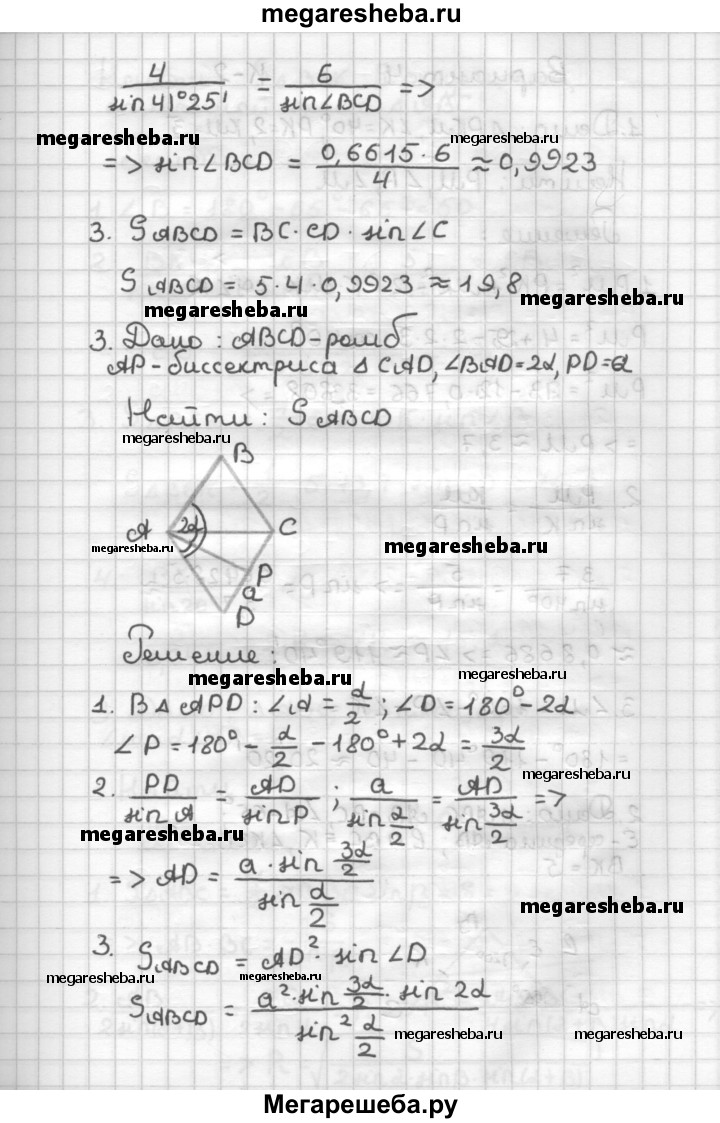 megaresheba.ru
4/sin 41°25' = 6/sin∠BCD =>
megaresheba.ru megaresheba.ru
=> sin∠BCD = 0,6615·6/4 ≈ 0,9923
3. SABCD = BC·CD·sin∠C
SABCD = 5·4·0,9923 ≈ 19,8
megaresheba.ru megaresheba.ru
3. Дано: ABCD-ромб
AP-биссектриса Δ CAD, ∠BAD=2α, PD=a
Найти: SABCD
megaresheba.ru
B
A 2α C
megaresheba.ru megaresheba.ru
P
a
D
Решение:
megaresheba.ru megaresheba.ru
1. В Δ APD: ∠A = α/2; ∠D = 180° - 2α
∠P = 180° - α/2 - 180° + 2α = 3α/2
megaresheba.ru
2. PD/sin A = AD/sin P; a/sin α/2 = AD/sin 3α/2 =>
megaresheba.ru
=> AD = a·sin 3α/2 / sin α/2
megaresheba.ru
3. SABCD = AD²·sin∠D
megaresheba.ru megaresheba.ru megaresheba.ru
SABCD = a²·sin 3α/2·sin 2α / sin² α/2
megaresheba.ru megaresheba.ru
Мегарешеба.ру